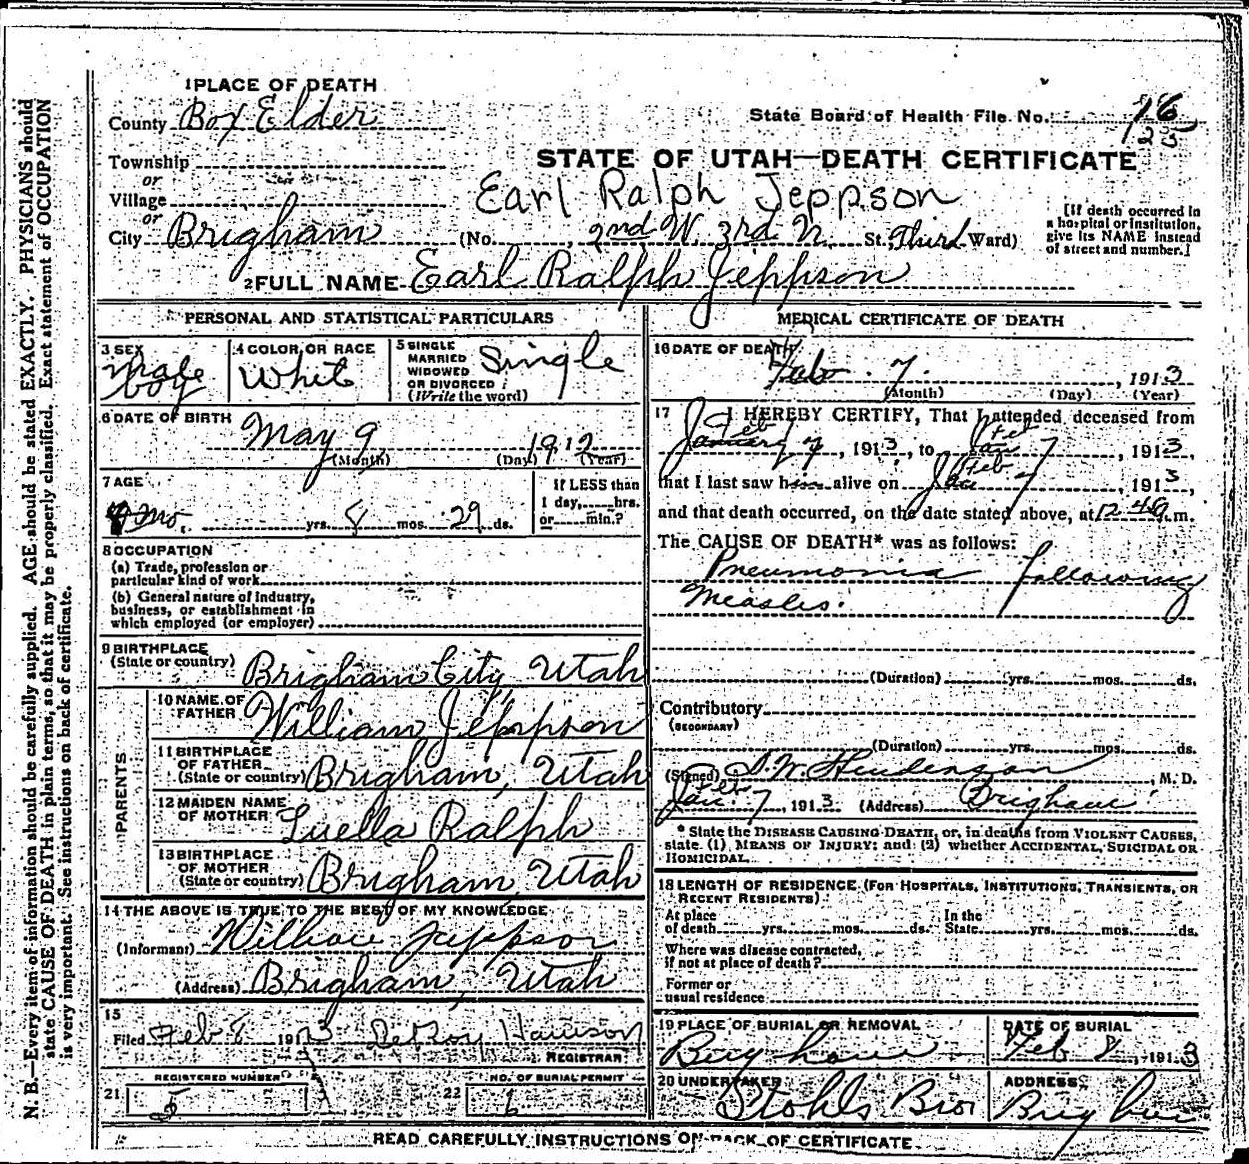 N. B.—Every item of information should be carefully supplied. AGE should be stated EXACTLY. PHYSICIANS should
state CAUSE OF DEATH in plain terms, so that it may be properly classified. Exact statement of OCCUPATION
is very important. See instructions on back of certificate.
1 PLACE OF DEATH
County Box Elder
State Board of Health File No. 16
Township
or
STATE OF UTAH—DEATH CERTIFICATE
Village
Earl Ralph Jeppson
or
City Brigham (No. , 2nd W. 3rd N. St. Third Ward)
[If death occurred in
a hospital or institution,
give its NAME instead
of street and number.]
2 FULL NAME Earl Ralph Jeppson
PERSONAL AND STATISTICAL PARTICULARS
3 SEX
male
boy
4 COLOR OR RACE
White
5 SINGLE
MARRIED
WIDOWED
OR DIVORCED
(Write the word)
Single
6 DATE OF BIRTH
May 9 1912
(Month) (Day) (Year)
7 AGE
9 mo. yrs. 8 mos. 29 ds.
If LESS than
1 day, hrs.
or min.?
8 OCCUPATION
(a) Trade, profession or
particular kind of work
(b) General nature of industry,
business, or establishment in
which employed (or employer)
9 BIRTHPLACE
(State or country) Brigham City, Utah
PARENTS
10 NAME OF
FATHER William Jeppson
11 BIRTHPLACE
OF FATHER
(State or country) Brigham, Utah
12 MAIDEN NAME
OF MOTHER Luella Ralph
13 BIRTHPLACE
OF MOTHER
(State or country) Brigham, Utah
14 THE ABOVE IS TRUE TO THE BEST OF MY KNOWLEDGE
(Informant) William Jeppson
(Address) Brigham, Utah
15
Filed Feb 8 1913 DeRoy Harrison
REGISTRAR
REGISTERED NUMBER
21 5
NO. OF BURIAL PERMIT
22 6
MEDICAL CERTIFICATE OF DEATH
16 DATE OF DEATH
Feb. 7. , 1913
(Month) (Day) (Year)
17 I HEREBY CERTIFY, That I attended deceased from
Feb Feb
January 7, 1913, to Jan 7, 1913,
Feb
that I last saw him alive on Jan 7, 1913,
and that death occurred, on the date stated above, at 12 40 a.m.
The CAUSE OF DEATH* was as follows:
Pneumonia following
Measles.
(Duration) yrs. mos. ds.
Contributory
(SECONDARY)
(Duration) yrs. mos. ds.
(Signed) D. W. Henderson, M. D.
Feb
Jan. 7, 1913 (Address) Brigham
* State the DISEASE CAUSING DEATH, or, in deaths from VIOLENT CAUSES,
state (1) MEANS OF INJURY; and (2) whether ACCIDENTAL, SUICIDAL OR
HOMICIDAL.
18 LENGTH OF RESIDENCE (FOR HOSPITALS, INSTITUTIONS, TRANSIENTS, OR
RECENT RESIDENTS)
At place
of death yrs. mos. ds.
In the
State yrs. mos. ds.
Where was disease contracted,
if not at place of death?
Former or
usual residence
19 PLACE OF BURIAL OR REMOVAL
Brigham
DATE OF BURIAL
Feb 8, 1913
20 UNDERTAKER
Stohls Bros
ADDRESS
Brigham
READ CAREFULLY INSTRUCTIONS ON BACK OF CERTIFICATE.